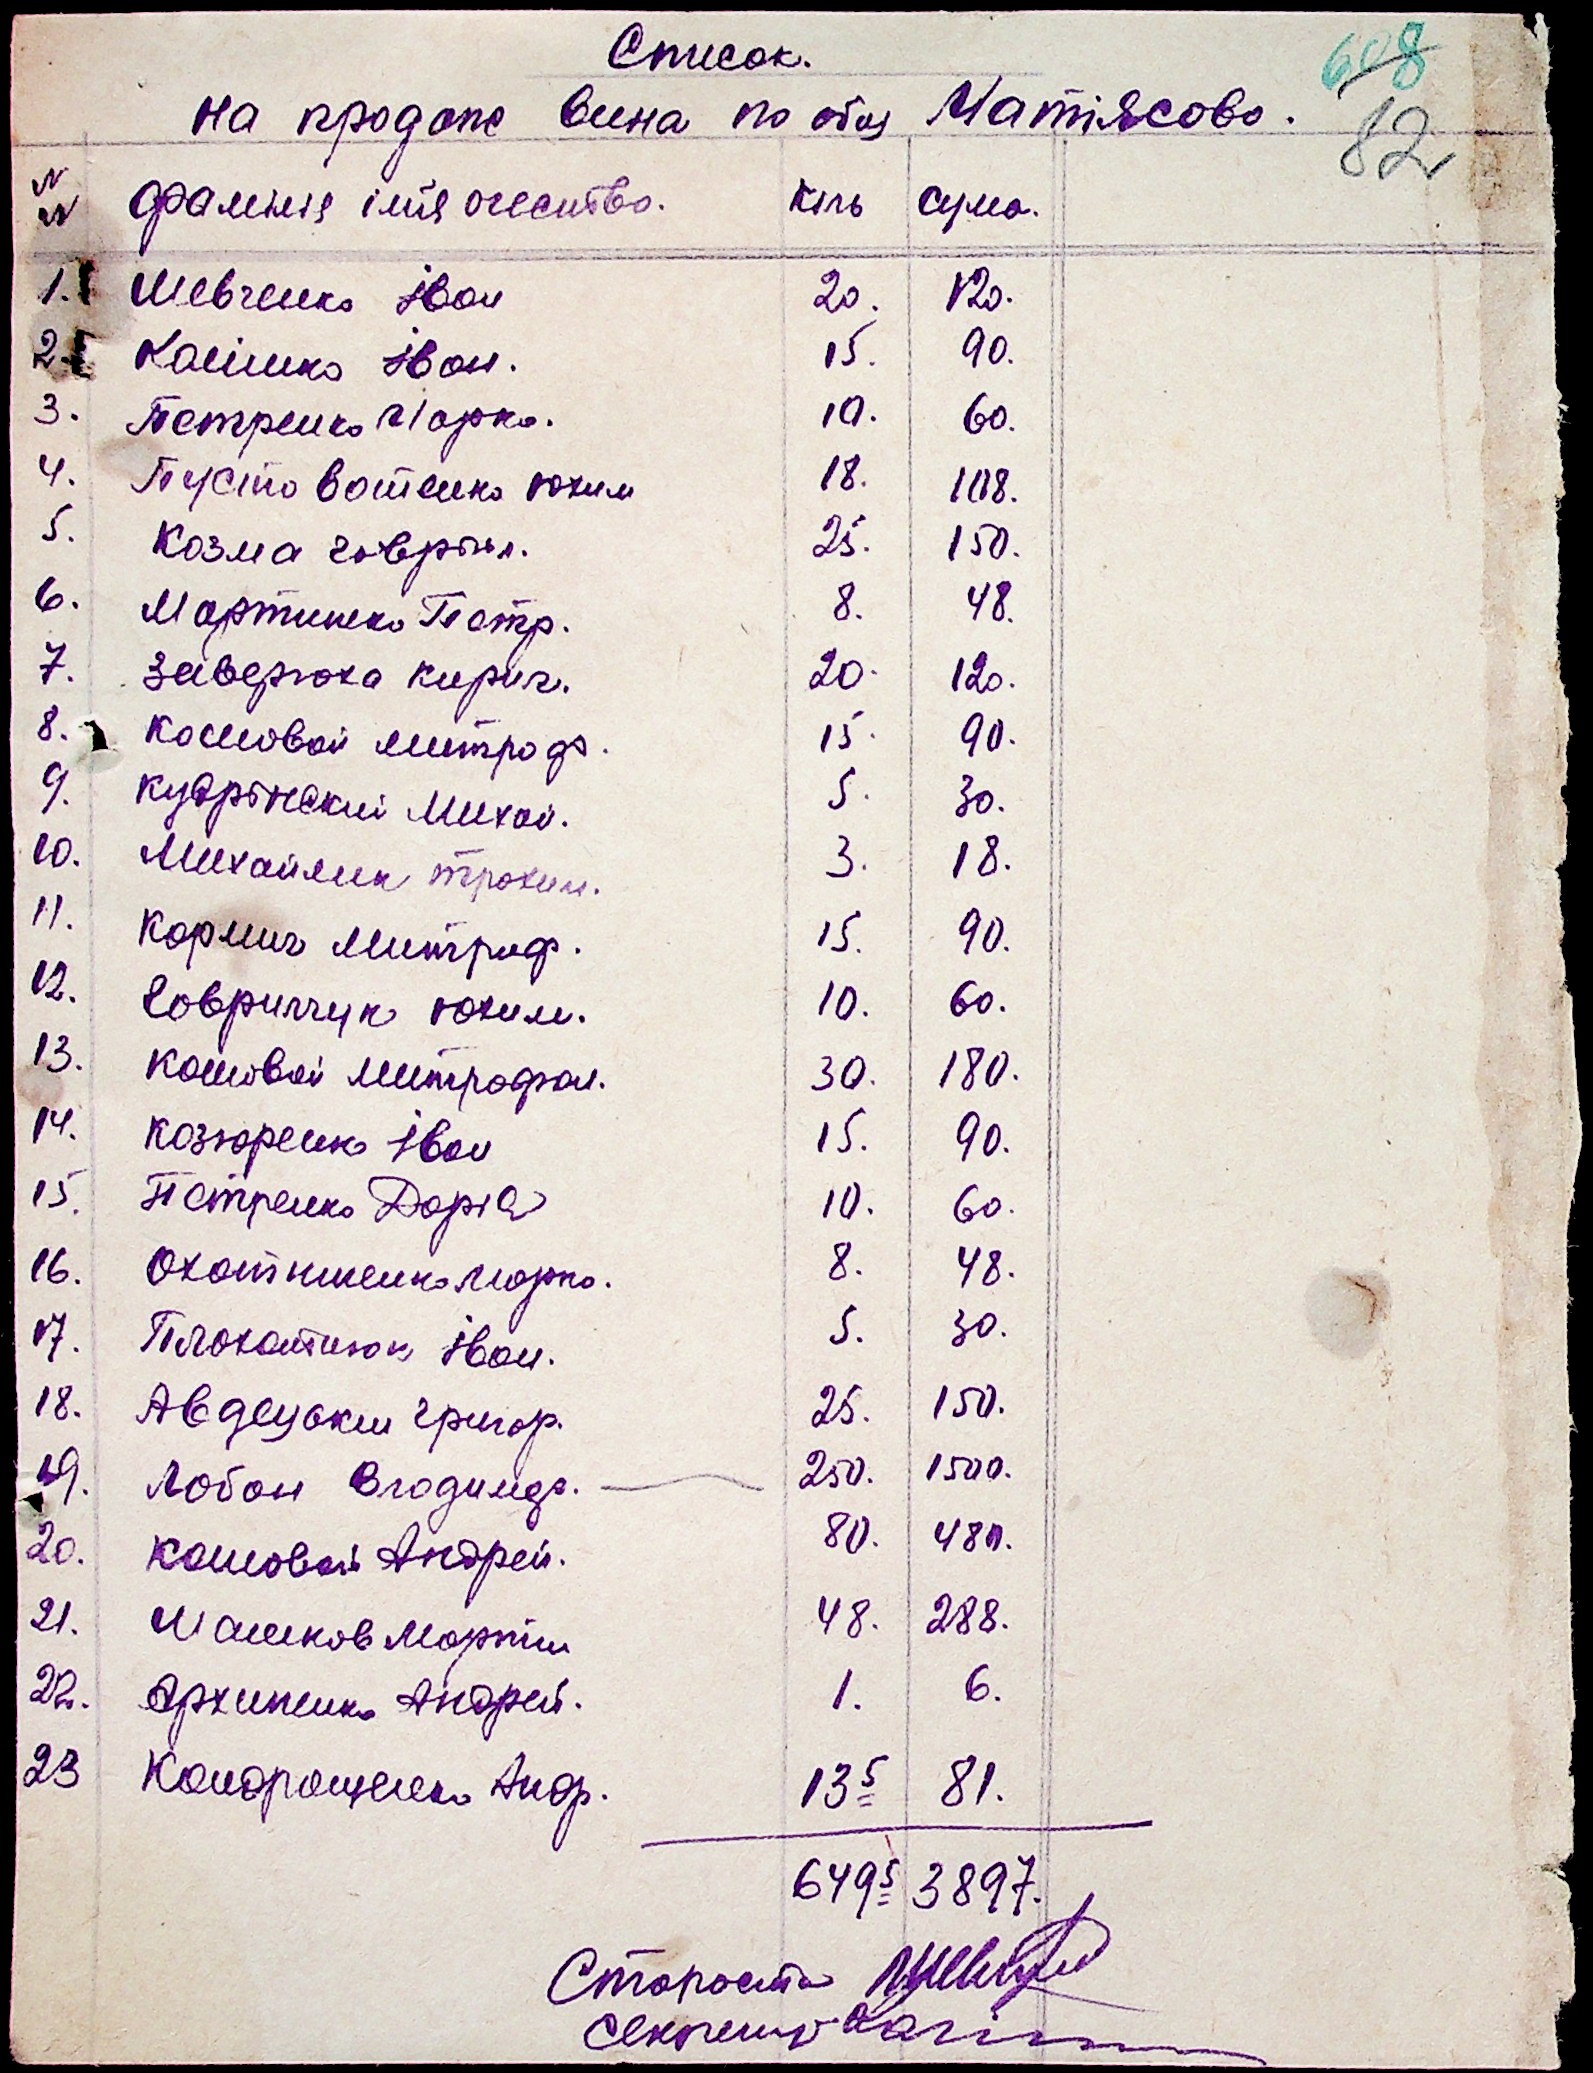 608
82
Список.
на продаж вина по общ Матіясово.
N N фамилія імя очество. кіль сума.
1. Шевченко Іван 20. 120.
2. Калішко Іван. 15. 90.
3. Петренко Марко. 10. 60.
4. Пустовотенко Юхим 18. 108.
5. Козма Говріил. 25. 150.
6. Мартинеко Петр. 8. 48.
7. Заверюха Кирич. 20. 120.
8. Кошовой Митроф. 15. 90.
9. Кудрінский Михай. 5. 30.
10. Михайлик Трохим. 3. 18.
11. Кормич Митроф. 15. 90.
12. Говрилчук Юхим. 10. 60.
13. Кошовой Митрофан. 30. 180.
14. Козюренко Іван 15. 90.
15. Петренко Дарія 10. 60.
16. Охотниченко Марко. 8. 48.
17. Плохотнюк Іван. 5. 30.
18. Авдеуский Григор. 25. 150.
19. Лобан Владимер. — 250. 1500.
20. Кошовой Андрей. 80. 480.
21. Машков Мартин 48. 288.
22. Архипенко Андрей. 1. 6.
23 Кондрашенко Андр. 13 5 81.
649 5 3897.
Староста
Секретар